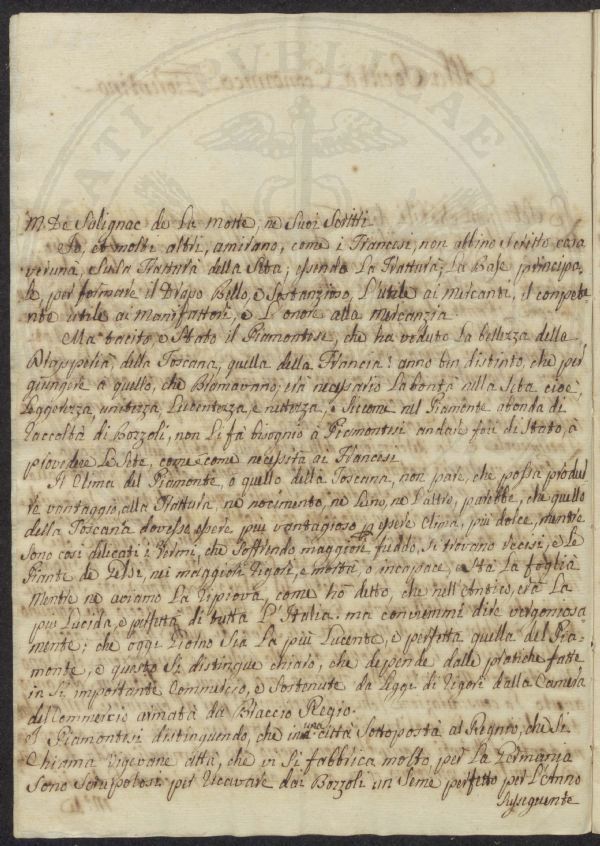 M. De Salignac de La motte, ne Suoi Scritti
Io, et molti altri, amirano, come i Francesi, non abbino Scritto cosa
veruna, Sulla Trattura della Seta; essendo La Trattura, La Base principa-
le, per formare il Drapo Bello, e Sostanzioso, L'utile ai mercanti, il compete
nte utile ai manifattori, e L'onore alla mercanzia.
Ma tacito, e Stato il Piamontese, che ha veduto La bellezza della
Drapperia, della Toscana, quella della Francia: anno ben distinto, che per
giungere a quello, che Bramavano, era necessario La bontà nella Seta cioè
Leggerezza, unitezza, Lucentezza, e nettezza, e Siccome nel Piamonte abonda di
raccolta di Bozzoli, non Li fà bisognio à Piamontesi andare fori di Stato, à
provedere Le Sete, come come necessita ai Francesi
Il Clima del Piamonte, o quello della Toscana, non pare, che possa produr
re vantaggio, alla Trattura, ne nocimento, ne L'uno, ne L'altro, parebbe, che quello
della Toscana dovesse essere più vantagioso p essere Clima, più dolce, mentre
Sono così delicati i Vermi, che Soffrendo maggior freddo, Si trovano uccisi, e Le
Piante de Gelsi, nei maggiori rigori, e mostra, o incapace, e Sta La foglia
Mentre ne aviamo La riprova, come hò detto, che nell'Antico, era La
più Lucida, e perfetta di tutta L'Italia. ma conviemmi dire vergoniosa
mente; che oggi Giorno Sia La più Lucente, e perfetta quella del Pia-
monte, e questo Si distingue chiaro, che depende dalle pratiche fatte
in Sì importante Commercio, e Sostenute da Leggi di rigori dalla Camera
del Commercio armata da Braccio Regio.
I Piamontesi distinguendo, che in una città Sottoposta al Regnio, che Si
Chiama Vigevane città, che vi Si fabbrica molto per La Germania
Sono Scrupolosi per ricavare dai Bozzoli un Seme perfetto per L'Anno
Susseguente